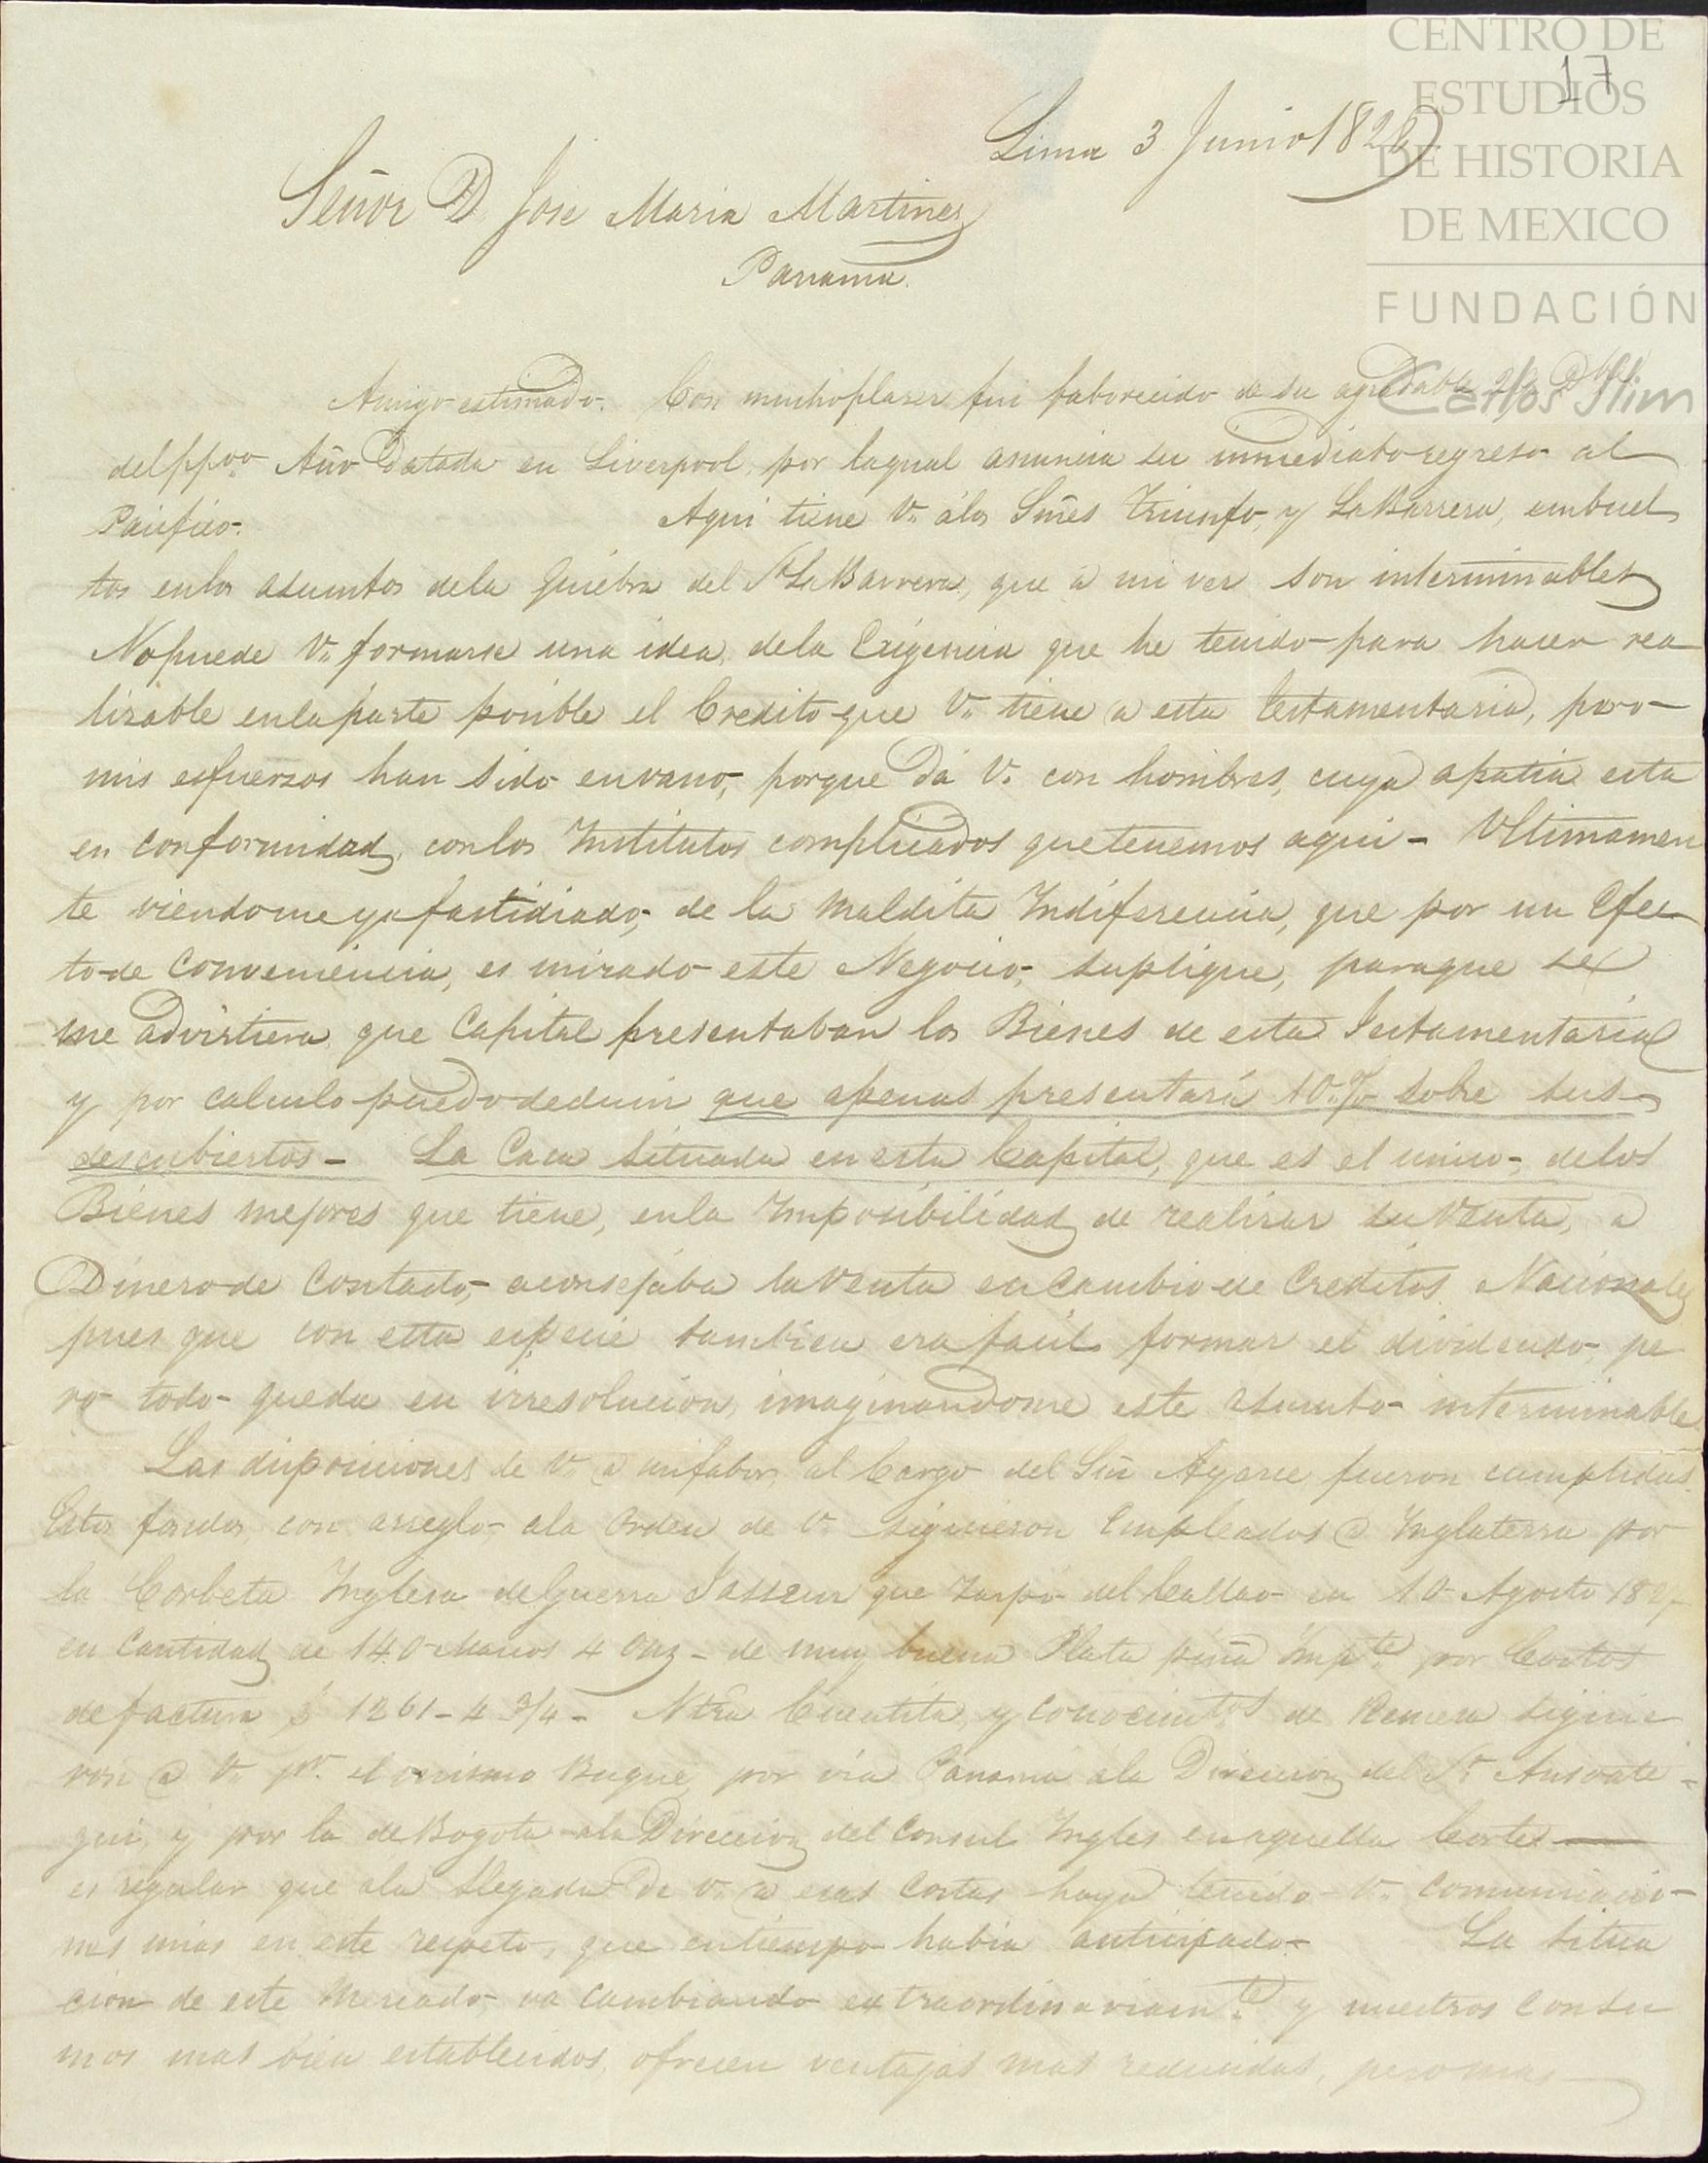 CENTRO DE
ESTUDIOS
DE HISTORIA
DE MEXICO
FUNDACIÓN
Carlos Slim
17
Lima 3 Junio 182
Señor D. Jose Maria Martinez
Panama.
Amigo estimado. Con muchoplaser fui faborecido de su agradable
del ppdo Año Datada en Liverpool, por laqual anuncia su inmediato regreso al
Pacifico. Aqui tiene V. álos Sres Triunfo, y LaBarrera, embuel
tos enlos asuntos dela Quiebra del Sr LaBarrera, que á mi ver son interminables
Nopuede V. formarse una idea, dela Exigencia que he tenido para hacer rea
lizable enlaparte posible el Credito que V. tiene a esta Testamentaria, pero
mis esfuerzos han sido envano, porque Dá V. con hombres, cuya apatia esta
en conformidad, conlos Institutos complicados quetenemos aqui - Ultimamen
te viendome ya fastidiado, de la maldita Indiferencia, que por un Efec
to de Conveniencia, es mirado este Negocio, suplique, paraque se
me advirtiera que Capital presentaban los Bienes de esta Testamentaria
y por calculo puedo deducir que apenas presentará 10 % sobre sus
descubiertos - La Casa situada en esta Capital, que es el unico, delos
Bienes mejores que tiene, enla Imposibilidad de realizar su Venta, a
Dinero de Contado, aconsejaba la Venta en Cambio de Creditos Nacionales
pues que con esta especie tambien era facil formar el dividendo, pe
ro todo queda en irresolucion, imaginandome este asunto interminable
Las disposiciones de V. a mifabor, al Cargo del Sñr fueron cumplidas.
Estos fondos, con arreglo ala Orden de V. siguieron Empleados a Inglaterra por
la Corbeta Inglesa deGuerra que zarpó del Callao en 10 Agosto 182
en Cantidad de 140 Marcos 4 Onz - de muy buena Plata piña Impte por Costos
defactura $ 1261-4 3/4 - Ntra Cuentita y conocimtos de Remesa siguie
ron a V. pr. el mismo Buque, por via Panamá ála Direccion del Sr.
gui, y por la de Bogota ala Direccion del Consul Ingles enaquella Corte
es regular que ala llegada De V. a esas Costas haya tenido V. comunicacio-
nes mias en este respeto, que entiempo habia anticipado - La Situa
cion de este Mercado, va Cambiando extraordinariamte y nuestros Consu
mos mas bien establecidos, ofrecen ventajas mas reducidas, pero mas